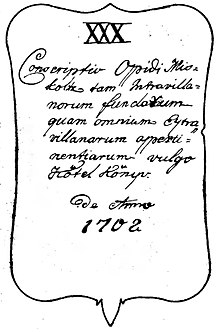 XXX
Conscriptio Oppidi Mis-
kolcz tam Intravilla-
norum fundorum
quam omnium Extra
villanarum apperti-
nentiarum vulgo
Kötel Könyv.
De Anno
1702